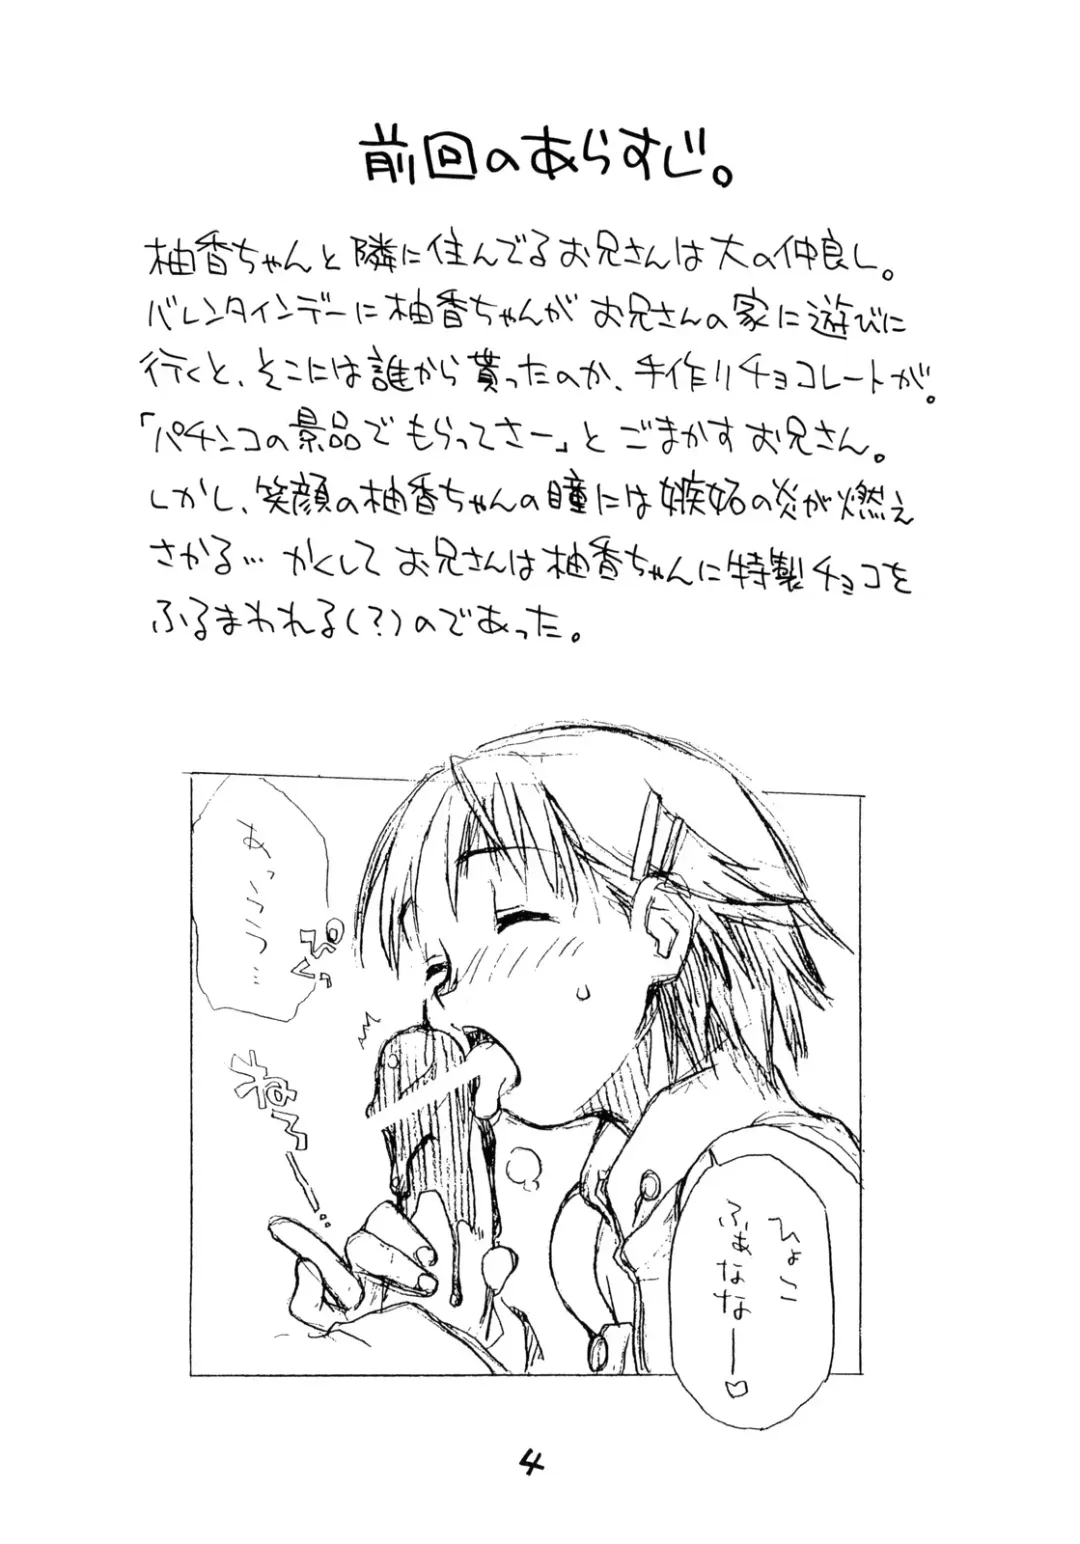 前回のあらすじ。
柚香ちゃんと隣に住んでるお兄さんは大の仲良し。
バレンタインデーに柚香ちゃんがお兄さんの家に遊びに
行くと、そこには誰から貰ったのか、手作りチョコレートが。
「パチンコの景品でもらってさー」とごまかすお兄さん。
しかし、笑顔の柚香ちゃんの瞳には嫉妬の炎が燃え
さかる…かくしてお兄さんは柚香ちゃんに特製チョコを
ふるまわれる(?)のであった。
あっ
うう…
ぴくっ
ねろ〜…
ひょこ
ふぁなな―♡
4